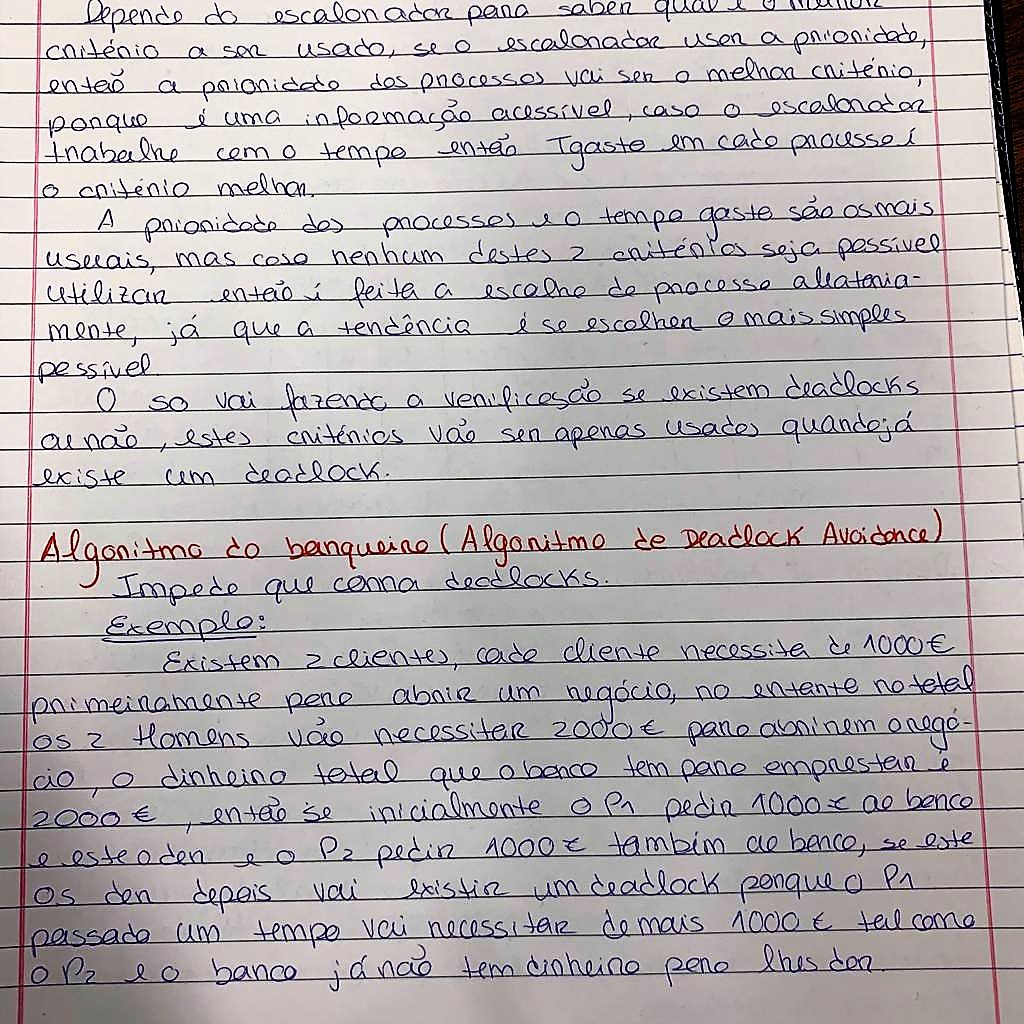 Depende do escalonador para saber qual é o melhor
critério a ser usado, se o escalonador user a prioridade,
então a prioridade dos processos vai ser o melhor critério,
porque é uma informação acessível, caso o escalonador
trabalhe com o tempo então Tgasto em cada processo é
o critério melhor.
A prioridade dos processos e o tempo gasto são os mais
usuais, mas caso nenhum destes 2 critérios seja possível
utilizar então é feita a escolha do processo aleatoria-
mente, já que a tendência é se escolher o mais simples
possível.
O so vai fazendo a verificação se existem deadlocks
ou não, estes critérios vão ser apenas usados quando já
existe um deadlock.
Algoritmo do banqueiro (Algoritmo de Deadlock Avoidance)
Impede que corra deadlocks.
Exemplo:
Existem 2 clientes, cada cliente necessita de 1000€
primeiramente para abrir um negócio, no entanto no total
os 2 Homens vão necessitar 2000€ para abrirem o negó-
cio, o dinheiro total que o banco tem para emprestar é
2000€, então se inicialmente o P1 pedir 1000€ ao banco
e este o der e o P2 pedir 1000€ também ao banco, se este
os der depois vai existir um deadlock porque o P1
passado um tempo vai necessitar de mais 1000€ tal como
o P2 e o banco já não tem dinheiro para lhes dar.